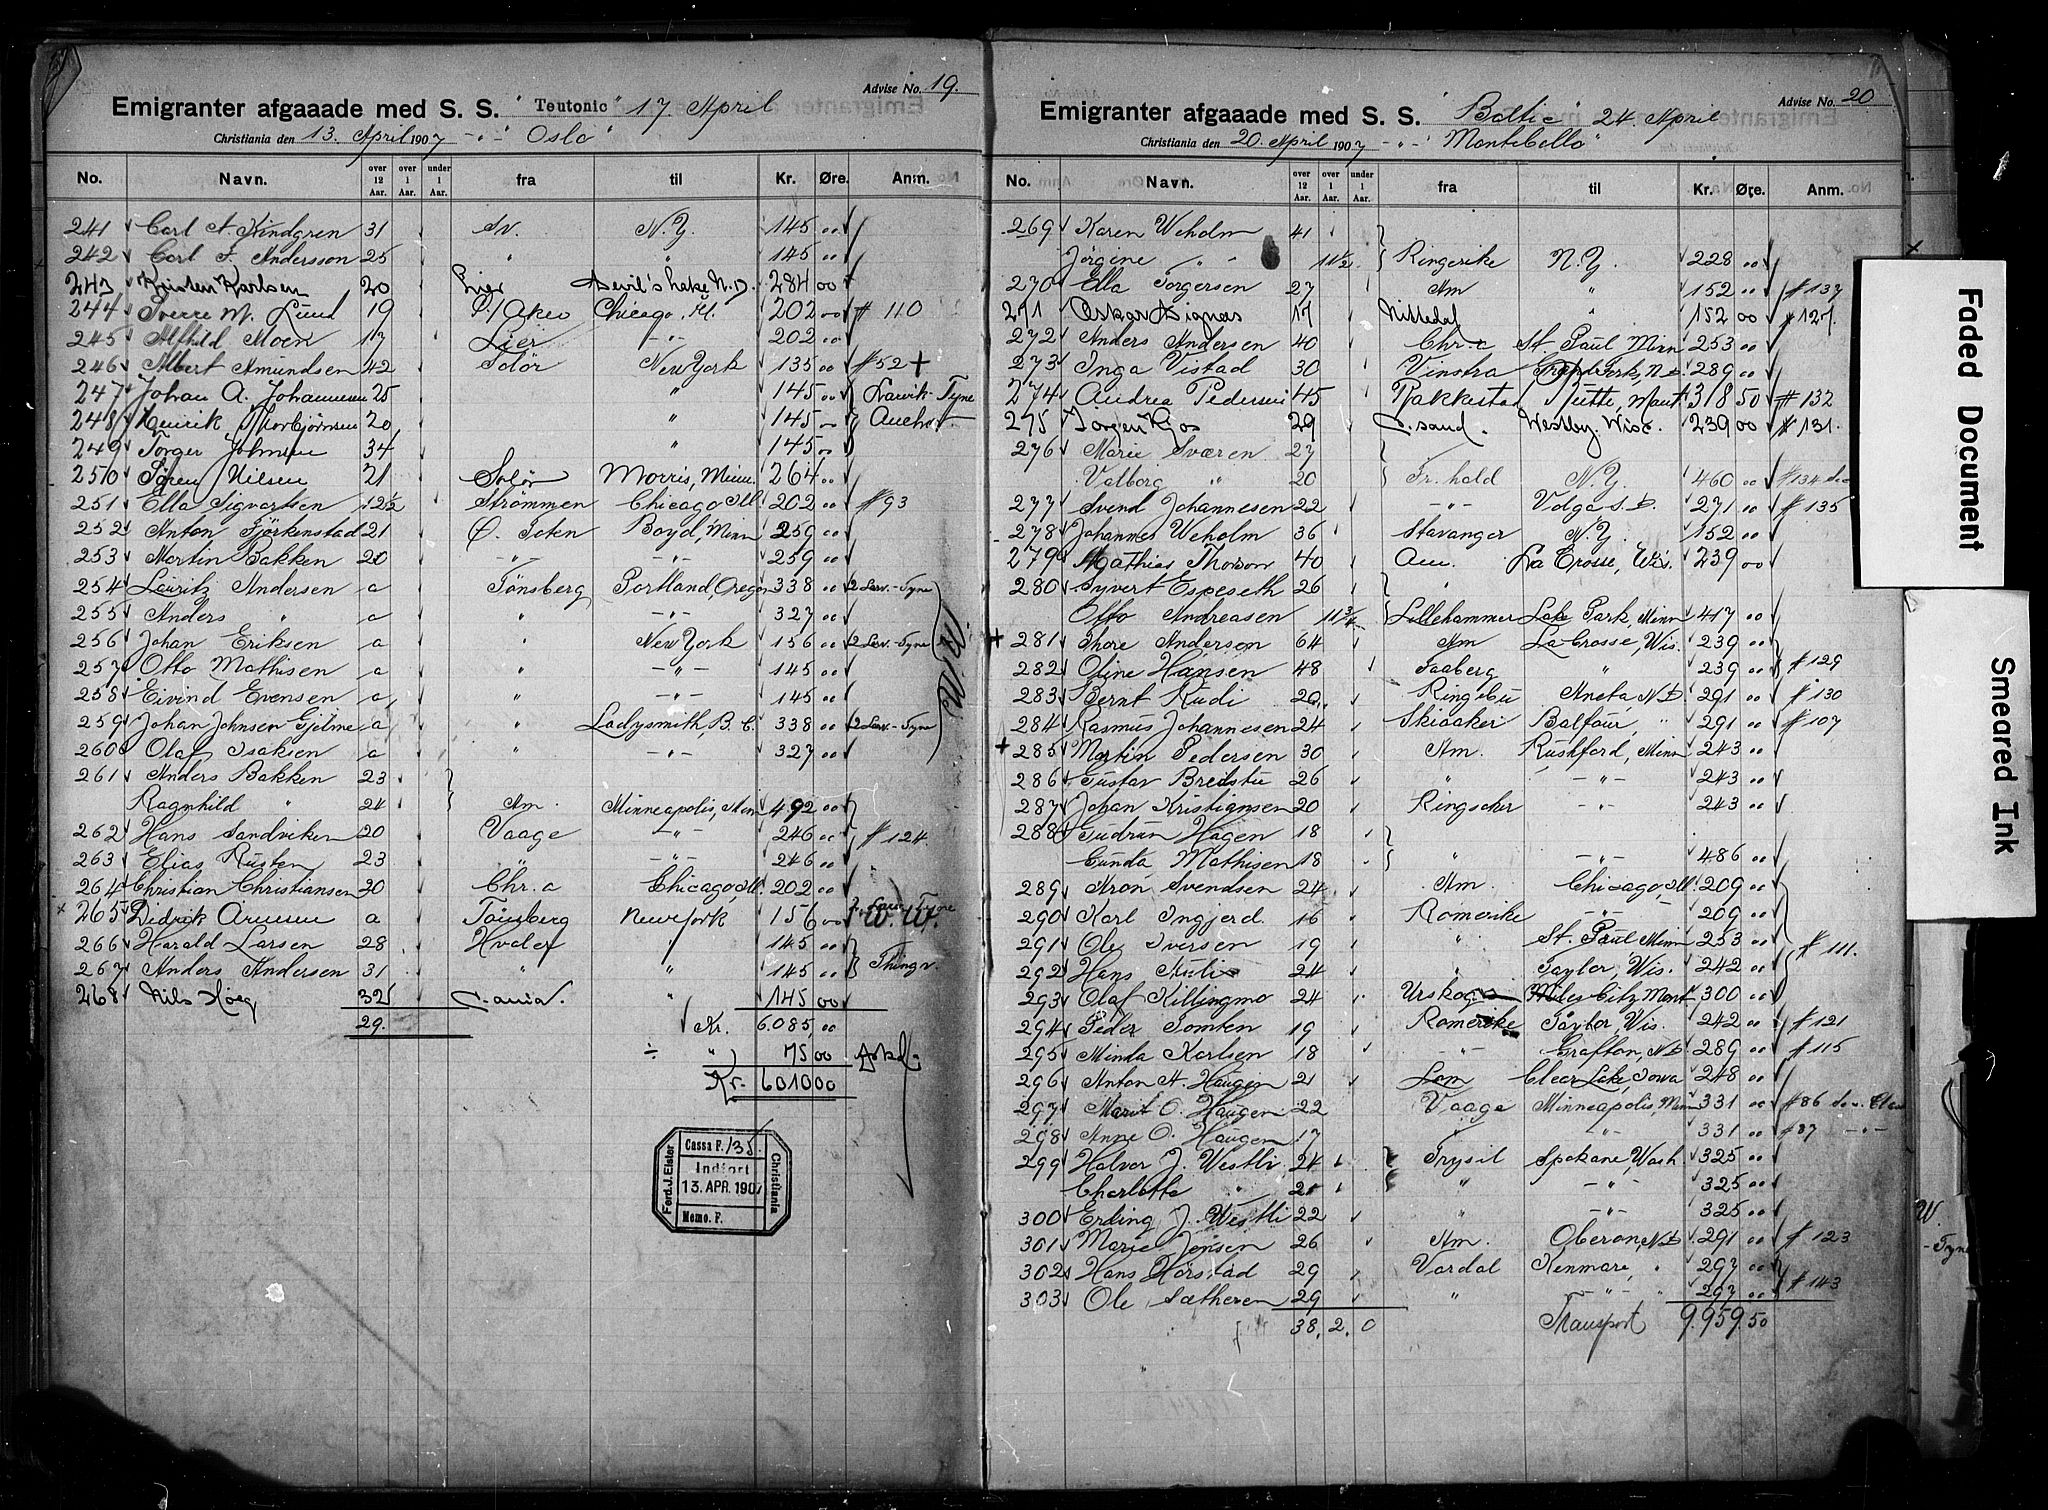 Advise No. 19.
Emigranter afgaaade med S. S. "Teutonic" 17 April
Christiania den 13. April 1907 -"- "Oslo"
No. Navn. over 12 Aar. over 1 Aar. under 1 Aar. fra til Kr. Øre. Anm.
241 Carl A Kindgren 31 Sv. N.Y. 145 "
242 Carl F. Andersson 25 " " 145 "
243 Kristen Karlsen 20 Lier Devil's Lake N.D. 284 00
244 Sverre M. Lund 19 V/Aker Chicago, Ill. 202 00 # 110
245 Alfhild Moen 17 Lier -"- 202 "
246 Albert Amundsen 42 Solør New York 135 " #52 +
247 Johan A. Johannesen 25 " 145 " Larvik-Tyne
248 Henrik Thorbjørnsen 20 " 145 "
249 Torger Johnsen 34 " 145 "
250 Søren Nilsen 21 Solør Morris, Minn. 264 "
251 Ella Sigvartsen 12 1/2 Strømmen Chicago Ill. 202 " # 93
252 Anton Bjørkenstad 21 Ø. Toten Boyd, Minn 259 "
253 Martin Bakken 20 -"- -"- 259 "
254 Lauritz Andersen a Tønsberg Portland, Oregon 338 " 2 Larv.-Tyne
255 Anders " a " -"- 327 "
256 Johan Eriksen a " New York 156 " 2 Larv.-Tyne
257 Otto Mathisen a " -"- 145 "
258 Eivind Evensen a " -"- 145 "
259 Johan Johnsen Gjelme a " Ladysmith, B.C. 338 " 2 Larv.-Tyne
260 Olaf Isaksen a " -"- 327 "
261 Anders Bakken 23
Ragnhild " 24 Am. Minneapolis, Minn 492 "
262 Hans Sandviken 20 Vaage -"- 246 " # 124
263 Elias Rusten 23 -"- 246 "
264 Christian Christiansen 30 Chr.a Chicago, Ill. 202 "
265 Didrik Arnesen a Tønsberg New York 156 " 2 Larv. Tyne W.W.
266 Harald Larsen 28 Hvaler " 145 "
267 Anders Andersen 31 " " 145 " Thingv.
268 Nils Høeg 32 C.ania. " 145 00
29.
Kr. 6.085,00
÷ " 75 00
Kr. 6010 00
Ferd. J. Elster
Cassa F. 135
Indført
13. APR. 1907
Memo. F.
Christiania
Advise No. 20
Emigranter afgaaade med S. S. "Baltic" 24. April
Christiania den 20. April 1907 -"- "Montebello"
No. Navn. over 12 Aar. over 1 Aar. under 1 Aar. fra til Kr. Øre. Anm.
269 Karen Weholm 41
Jørgine " 11 1/2 Ringerike N.Y. 228 "
270 Ella Torgersen 27 Am " 152 " # 137
271 Oskar Signæs 17 Nittedal " 152 00 # 127.
272 Anders Andersen 40 Chr.a St Paul Minn 253 "
273 Inga Vistad 30 Vinstra 289 "
274 Andrea Pedersen 45 Rakkestad Butte, Mont 318 50 # 132
275 Jørgen Kjos 29 C. sand. Westby, Wisc. 239 00 # 131.
276 Marie Sværen 27
Valborg " 20 Fr.hald N.Y. 460 " # 134
277 Svend Johannesen 22 -"- Volga S.D. 271 " # 135
278 Johannes Weholm 36 Stavanger N.Y. 152 "
279 Mathias Thorson 40 Am. La Crosse, Wis. 239 00
280 Syvert Espeseth 26 "
Otto Andreasen 11 3/4 Lillehammer Lake Park, Minn 417 "
281 Thore Anderson 64 Am La Crosse, Wis. 239 "
282 Oline Hansen 48 Faaberg " 239 " # 129
283 Bernt Rudi 20 Ringebu Aneta, N.D. 291 " # 130
284 Rasmus Johannesen 24 Skiaaker Balfour, " 291 " # 107
285 Martin Pedersen 30 Am. Rushford, Minn 243 "
286 Gustav Bredstu 26 " -"- 243 "
287 Johan Kristiansen 20 Ringsaker -"- 243 "
288 Gudrun Hagen 18
Gunda Mathisen 18 " -"- 486 "
289 Aron Svendsen 24 Am. Chicago, Ill. 209 "
290 Karl Ingjerd. 16 Romerike -"- 209 "
291 Ole Iversen 19 " St. Paul Minn 253 " # 111.
292 Hans Kulis 24 " Taylor, Wis. 242 "
293 Olaf Killingmo 24 Urskog Miles City Mont 300 "
294 Peder Tomten 19 Romerike Taylor, Wis. 242 " # 121
295 Minda Karlsen 18 -"- Grafton, N.D. 289 " # 115
296 Anton H. Haugen 21 Lom Clear Lake, Iowa 248 "
297 Marit O. Haugen 22 Vaage Minneapolis, Minn 331 " # 86
298 Anne O. Haugen 17 " -"- 331 " # 87 -"-
299 Halvor J. Westli 24 Trysil Spokane, Wash. 325 "
Charlotte " 21 " -"- 325 "
300 Erling J. Westli 22 " -"- 325 "
301 Marie Jensen 26 Am. Oberon, N.D. 291 " # 123
302 Hans Hørstad 29 Vardal Kenmare, " 297 "
303 Ole Sætheren 29 " -"- " 297 " # 143
38. 2. 0 Transport 9.959.50
Faded Document
Smeared Ink